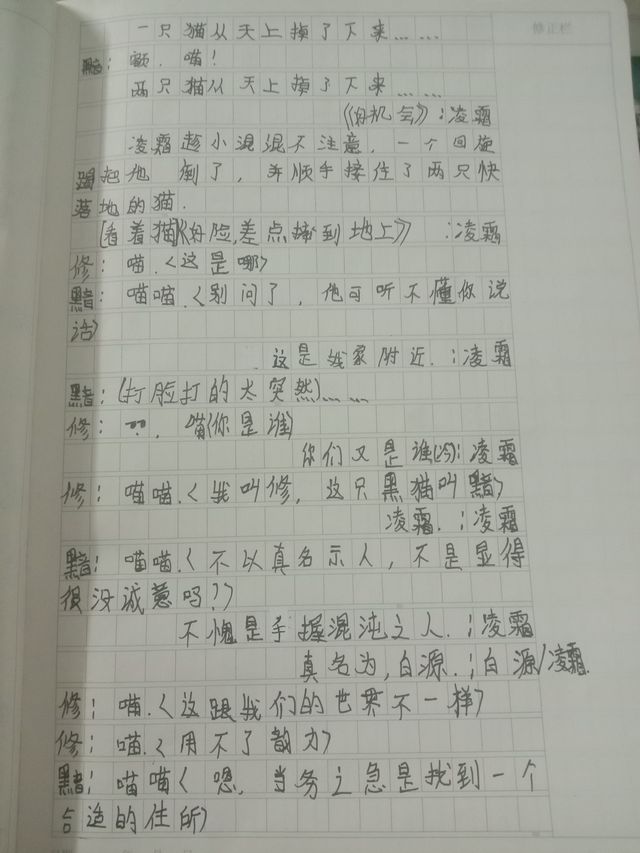 修正栏
一只猫从天上掉了下来……
黯：额．喵！
两只猫从天上掉了下来……
《好机会》：凌霜
凌霜趁小混混不注意，一个回旋
踢把他 倒了，并顺手接住了两只快
落地的猫．
[看着猫]《好险,差点摔到地上》 ：凌霜
修：喵．<这是哪>
黯：喵喵．<别问了，他可听不懂你说
话>
这是我家附近．：凌霜
黯：(打脸打的太突然)……
修：??．喵<你是谁>
你们又是谁 ：凌霜
修：喵喵．<我叫修，这只黑猫叫黯>
凌霜．：凌霜
黯：喵喵．<不以真名示人，不是显得
很没诚意吗?>
不愧是手握混沌之人．：凌霜
真名为，白源．：白源/凌霜.
修：喵．<这跟我们的世界不一样>
修：喵．<用不了韵力>
黯：喵喵<嗯，当务之急是找到一个
合适的住所>